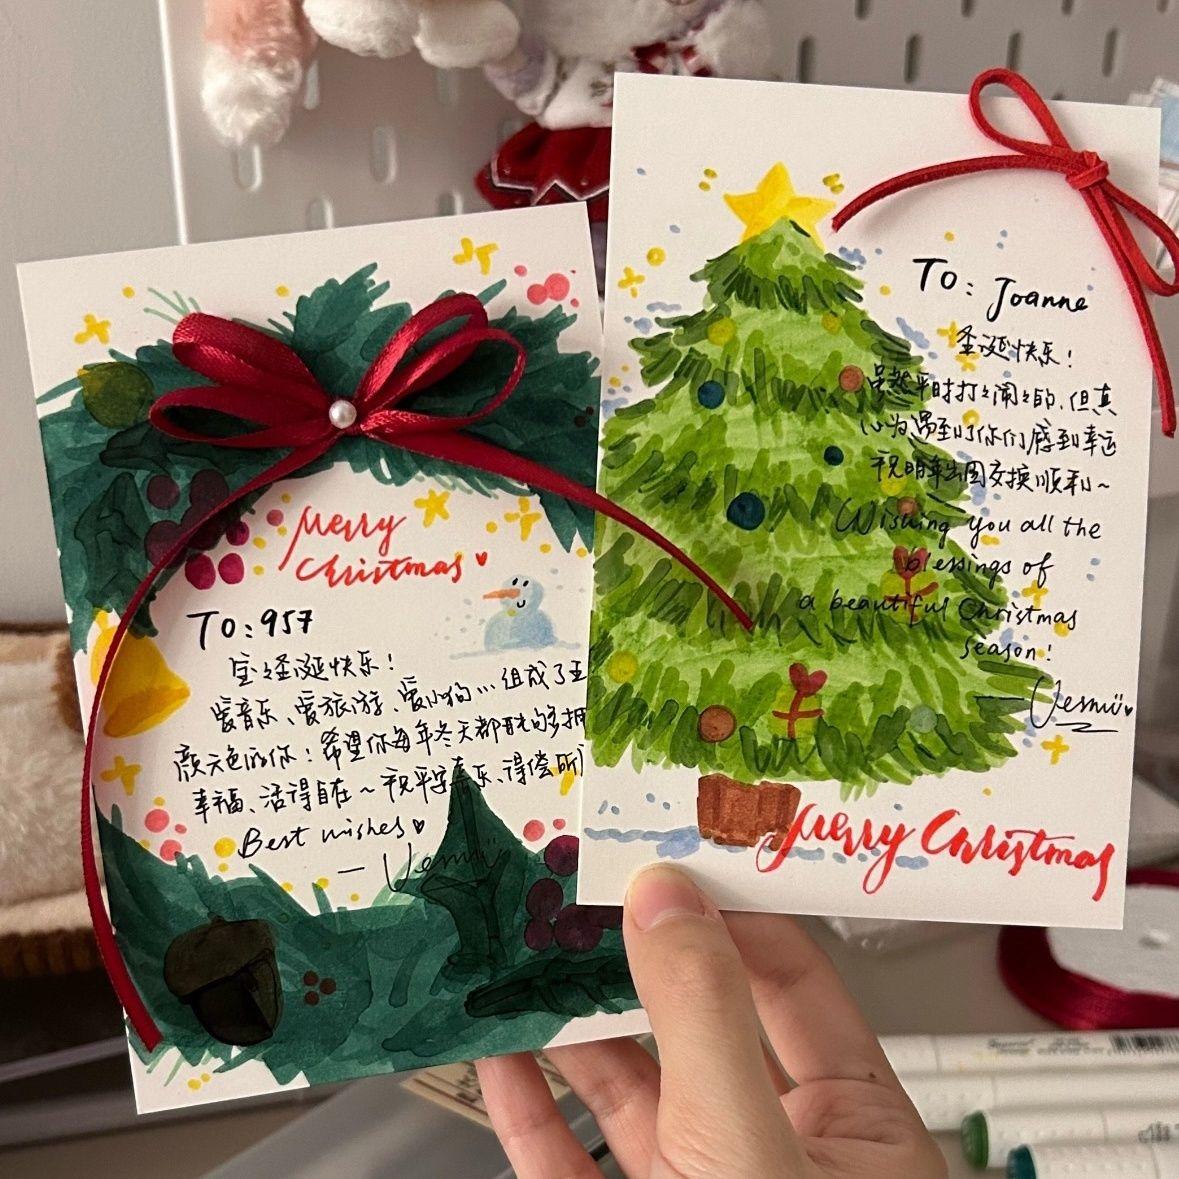 Merry
Christmas
TO: 957
宝々圣诞快乐！
爱音乐、爱旅游、爱小狗…组成了五
颜六色的你！希望你每年冬天都能够拥
幸福、活得自在～祝平安喜乐、得偿所
Best wishes
— Vemii
TO: Joanne
圣诞快乐！
虽然平时打々闹々的，但真
心为遇到你们感到幸运
祝明年出国交换顺利～
Wishing you all the
blessings of
a beautiful Christmas
season!
— Vemii
Merry Christmas